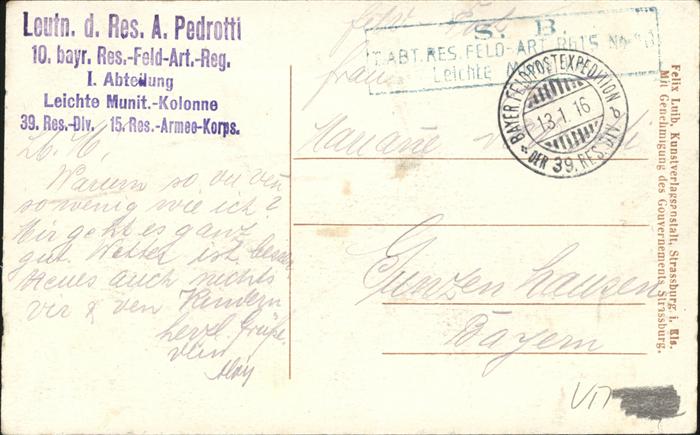 Leutn. d. Res. A. Pedrotti
10. bayr. Res.-Feld-Art.-Reg.
I. Abteilung
Leichte Munit.-Kolonne
39. Res.-Div. 15. Res.-Armee-Korps.
S. B.
ABT. RES. FELD-ART. RGTS No
Leichte
BAYER. FELDPOSTEXPEDITION
13.1.16
DER 39. RES. DIV.
Post
Frau
Gunzenhausen
Bayern
L. M.
Warum so
so wenig wie ich?
Mir geht es ganz
gut. Wetter ist besser
Neues auch nichts
Dir & den Kindern
herzl. Grüße
Dein
Aloys
Felix Luib, Kunstverlagsanstalt, Strassburg i. Els.
Mit Genehmigung des Gouvernements Strassburg.